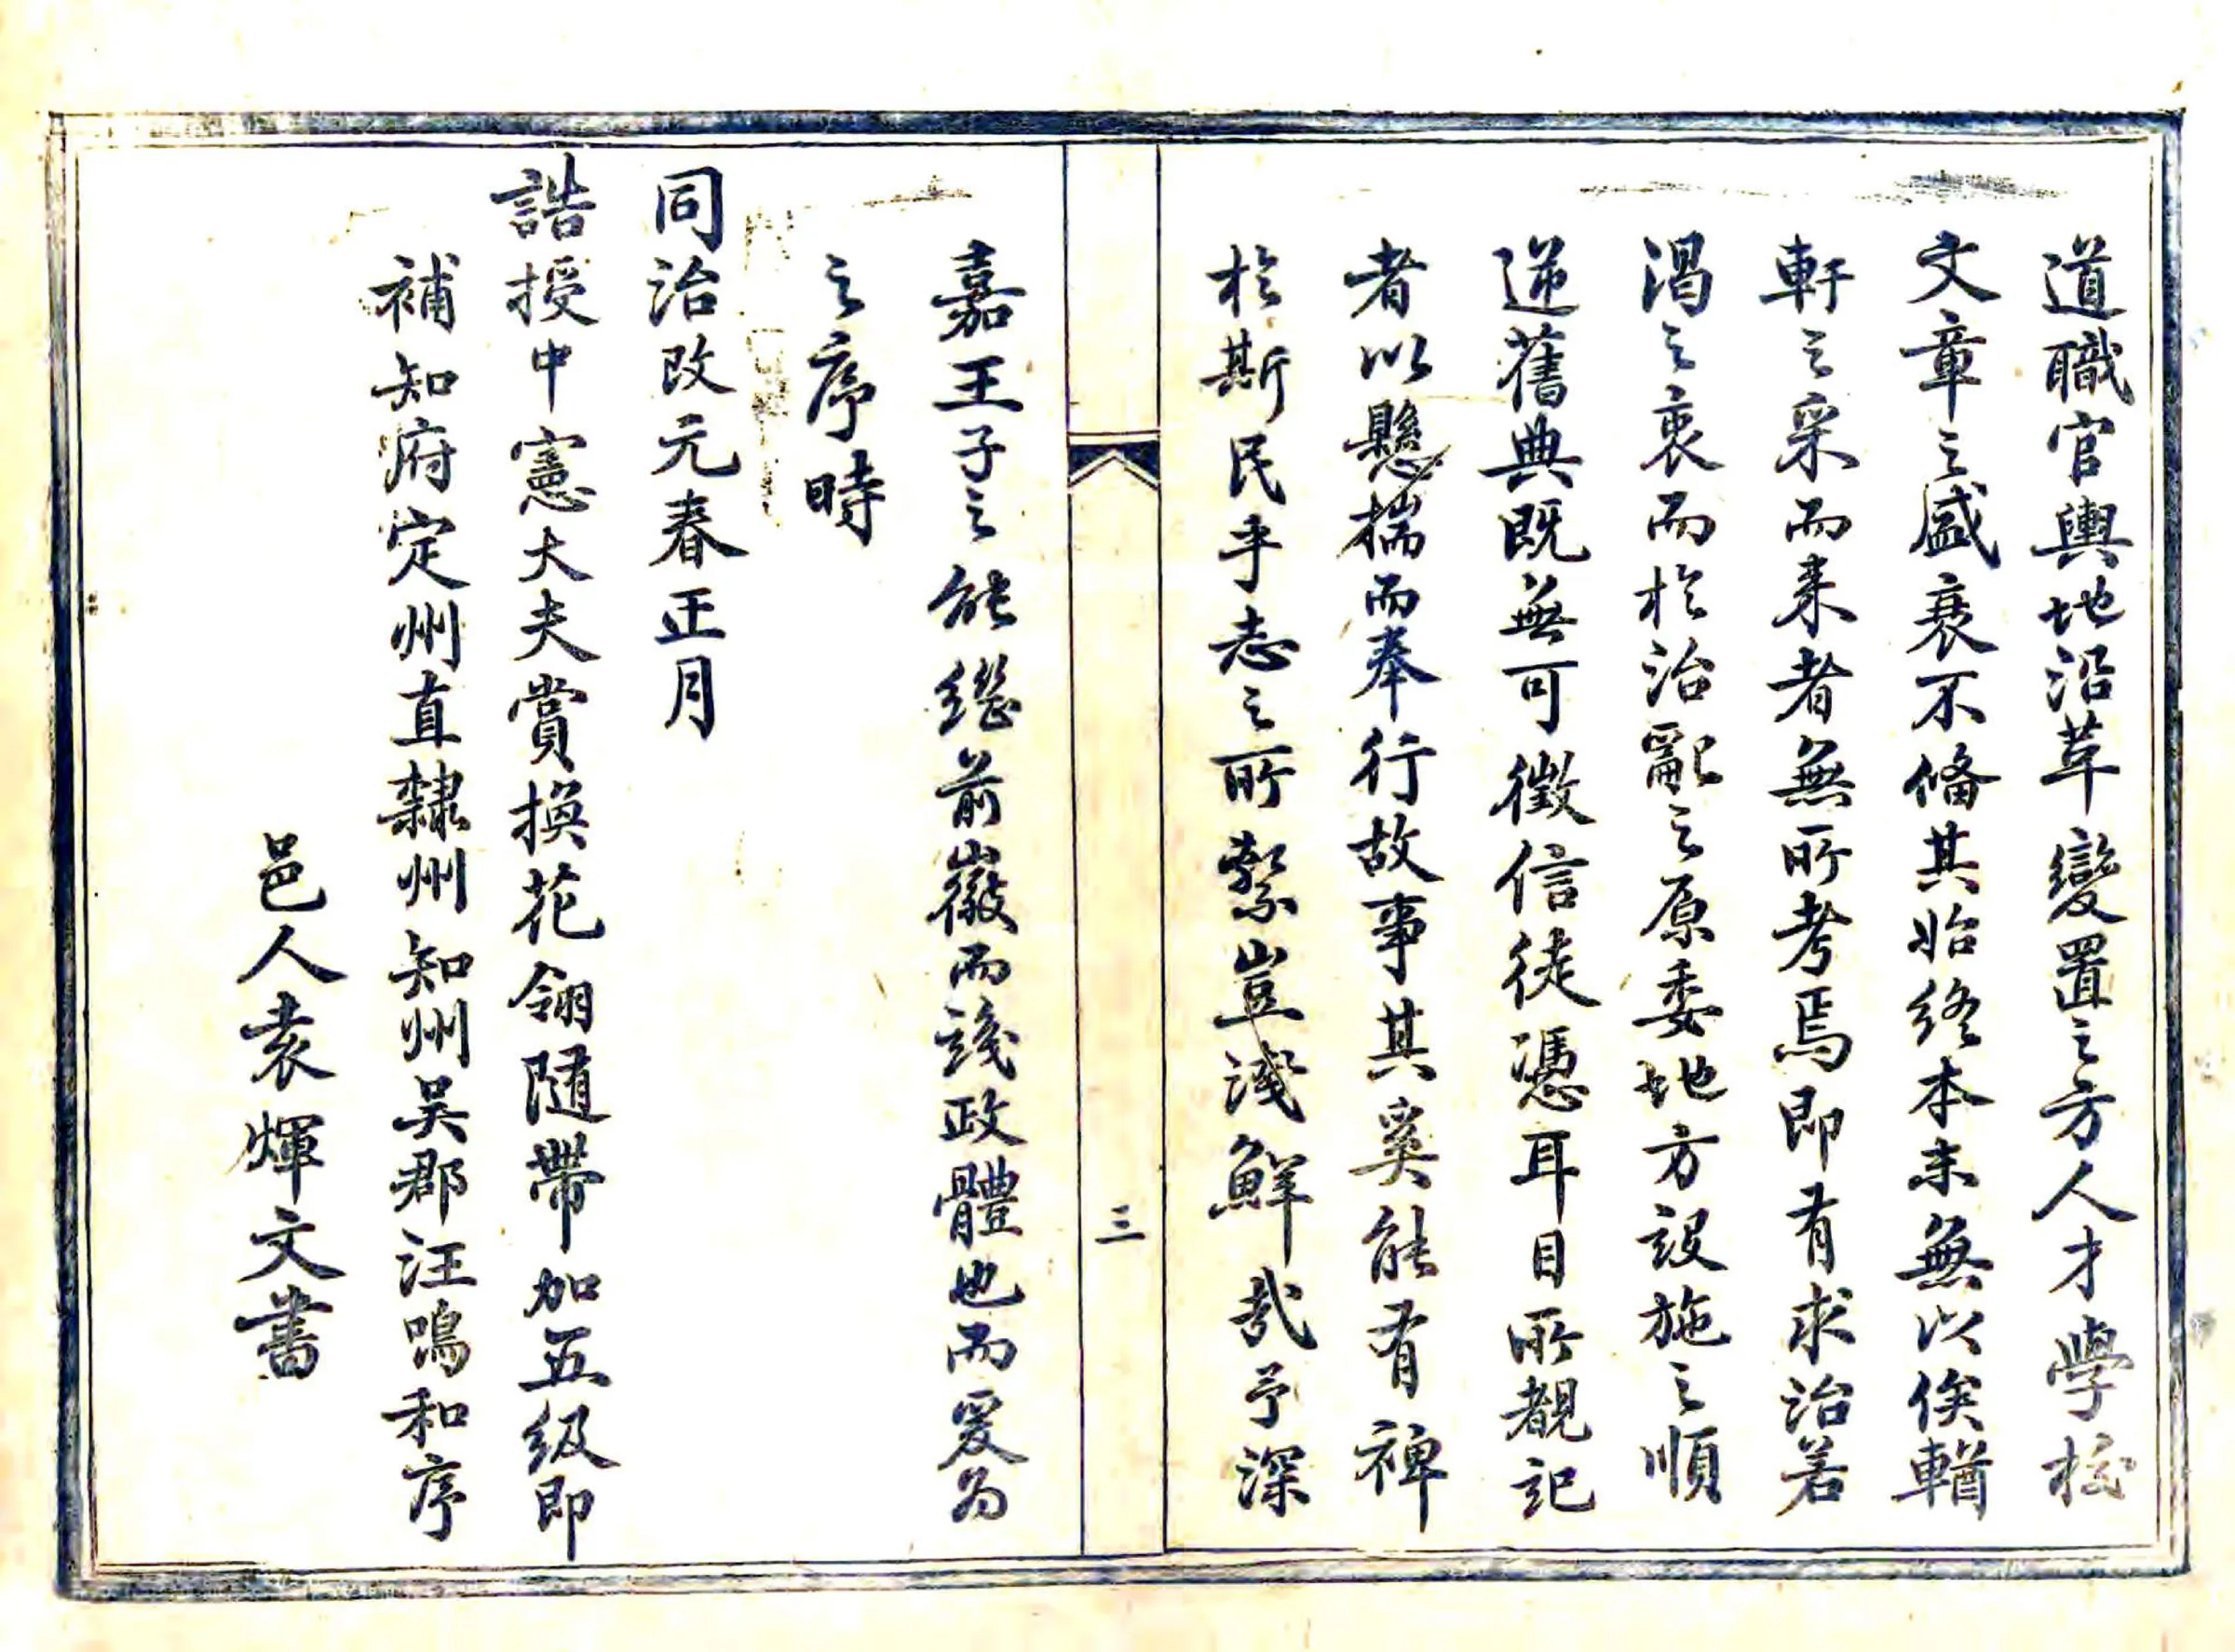 道職官輿地沿革變置之方人才學校
文章之盛衰不備其始終本末無以俟輶
軒之采而來者無所考焉即有求治若
渴之衷而於治亂之原委地方設施之順
逆舊典既無可徵信徒憑耳目所覩記
者以懸揣而奉行故事其奚能有裨
於斯民乎志之所繫豈淺鮮哉予深
三
嘉王子之能繼前徽而識政體也而爰為
之序時
同治改元春正月
誥授中憲大夫賞換花翎隨帶加五級即
補知府定州直隸州知州吳郡汪鳴和序
邑人袁煇文書